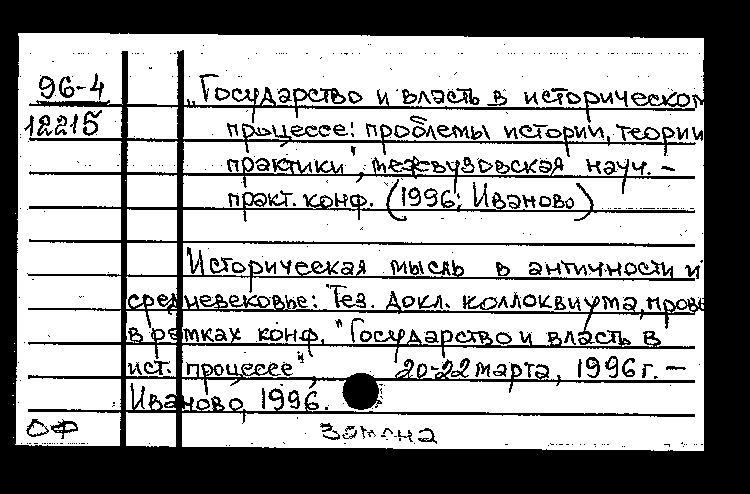 96-4
12215
„Государство и власть в историческом
процессе: проблемы истории, теории
практики", межвузовская науч. -
практ. конф. (1996; Иваново)
Историческая мысль в античности и
средневековье: Тез. докл. коллоквиума, прове
в рамках конф. "Государство и власть в
ист. процессе", 20-22 марта, 1996 г. -
Иваново, 1996.
ОФ замена